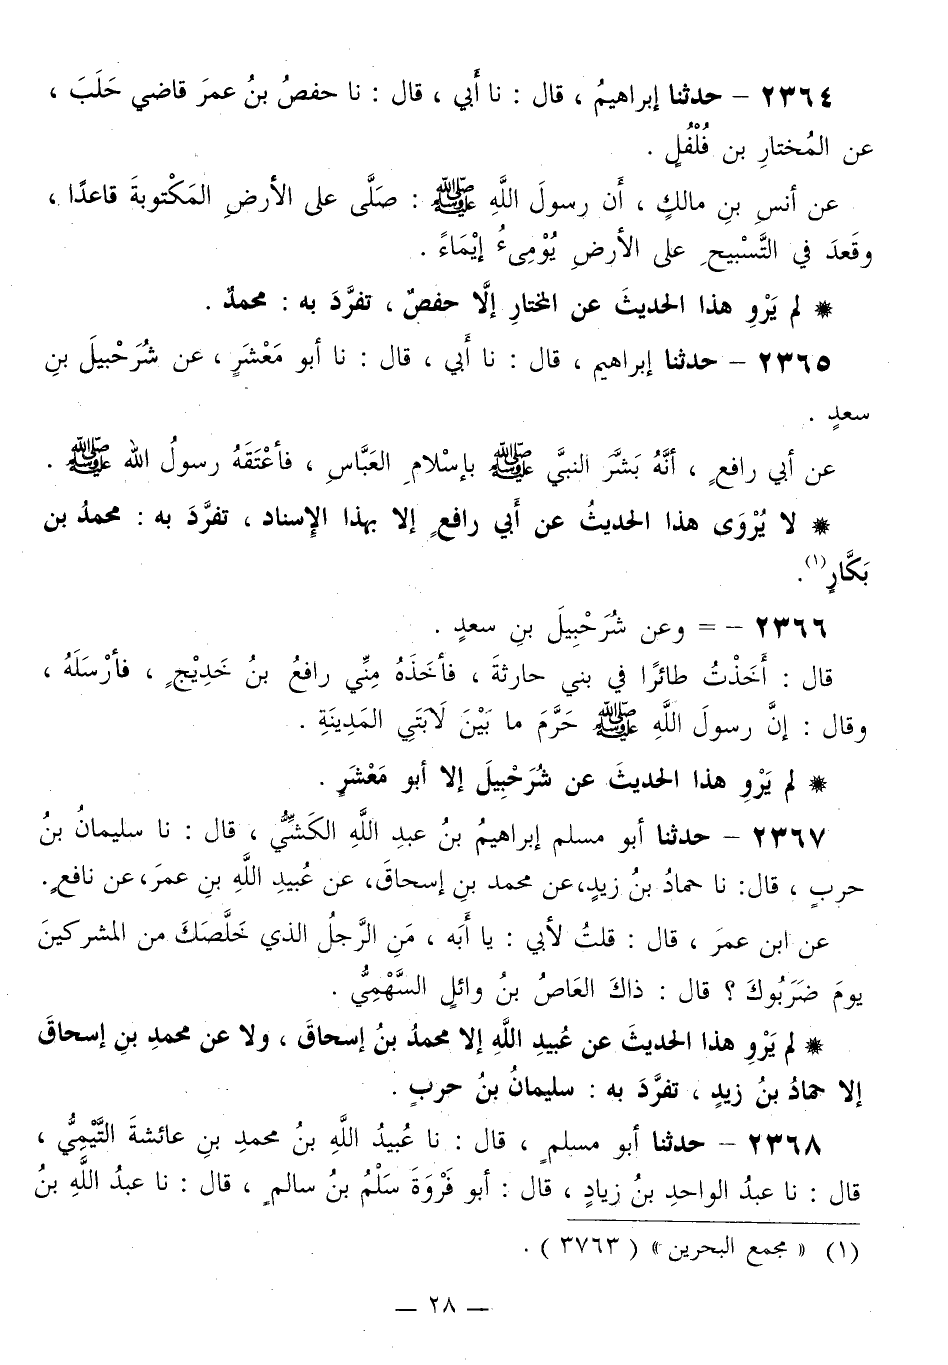 ٢٣٦٤ – حدثنا إبراهيمُ ، قال : نا أَبي ، قال : نا حفصُ بنُ عمرَ قاضي حَلَبَ ،
عن المُختارِ بن فُلْفُلٍ .
عن أنسِ بنِ مالكٍ ، أَن رسولَ اللَّهِ ﷺ : صَلَّى على الأرضِ المَكْتوبةَ قاعدًا ،
وقَعدَ في التَّسْبيحِ على الأرضِ يُوْمِىءُ إيْمَاءً .
* لم يَرْوِ هذا الحديثَ عن المختارِ إلَّا حفصٌ ، تفرَّدَ به : محمدٌ .
٢٣٦٥ – حدثنا إبراهيم ، قال : نا أَبي ، قال : نا أبو مَعْشَرٍ ، عن شُرَحْبيلَ بنِ
سعدٍ .
عن أبي رافعٍ ، أنَّهُ بَشَّرَ النبيَّ ﷺ بإسْلامِ العَبَّاسِ ، فأعْتَقَهُ رسولُ الله ﷺ .
* لا يُرْوَى هذا الحديثُ عن أَبي رافعٍ إلا بهذا الإسناد ، تفرَّدَ به : محمدُ بن
بَكَّارٍ(١).
٢٣٦٦ – = وعن شُرَحْبِيلَ بنِ سعدٍ .
قال : أَخَذْتُ طائرًا في بني حارثةَ ، فأخَذَهُ مِنِّي رافعُ بنُ خَدِيْجٍ ، فأرْسَلَهُ ،
وقال : إنَّ رسولَ اللَّهِ ﷺ حَرَّمَ ما بَيْنَ لَابَتَيِ المَدِينَةِ .
* لم يَرْوِ هذا الحديثَ عن شُرَحْبِيلَ إلا أبو مَعْشَرٍ .
٢٣٦٧ – حدثنا أبو مسلم إبراهيمُ بنُ عبدِ اللَّهِ الكَشِّيُّ ، قال : نا سليمانُ بنُ
حربٍ ، قال: نا حمادُ بنُ زيدٍ، عن محمد بنِ إسحاقَ، عن عُبيدِ اللَّهِ بنِ عمرَ، عن نافعٍ.
عن ابن عمرَ ، قال : قلتُ لأبي : يا أَبَه ، مَنِ الرَّجلُ الذي خَلَّصَكَ من المشركينَ
يومَ ضَرَبُوكَ ؟ قال : ذاكَ العَاصُ بنُ وائلٍ السَّهْمِيُّ .
* لم يَرْوِ هذا الحديثَ عن عُبيدِ اللَّهِ إلا محمدُ بنُ إسحاقَ ، ولا عن محمدِ بنِ إسحاقَ
إلا حمادُ بنُ زيدٍ ، تفرَّدَ به : سليمانُ بنُ حربٍ .
٢٣٦٨ – حدثنا أبو مسلمٍ ، قال : نا عُبيدُ اللَّهِ بنُ محمدِ بنِ عائشةَ التَّيْمِيُّ ،
قال : نا عبدُ الواحدِ بنُ زيادٍ ، قال : أبو فَرْوَةَ سَلْمُ بنُ سالمٍ ، قال : نا عبدُ اللَّهِ بنُ
(١) « مجمع البحرين » ( ٣٧٦٣ ) .
– ٢٨ –